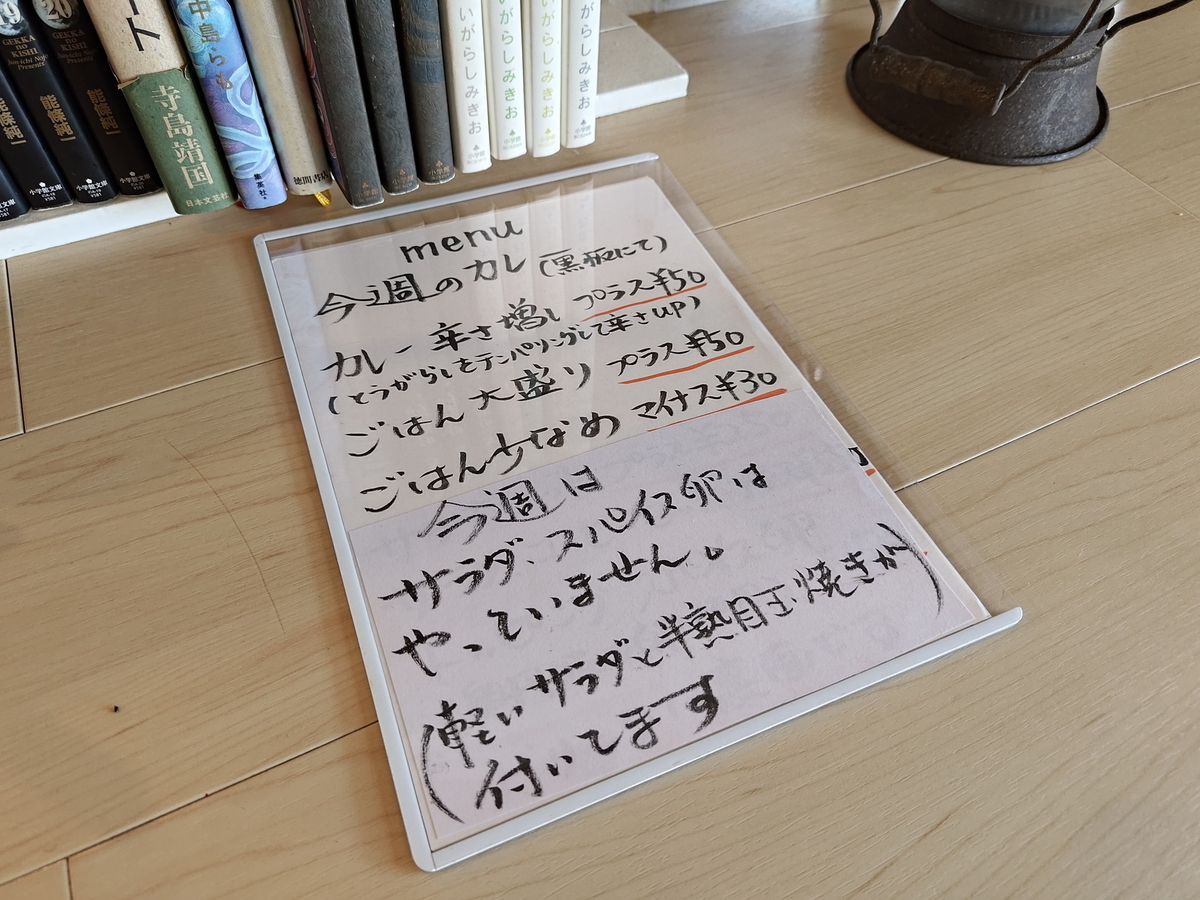 19
GEKKA
no
KISHI
Jun-ichi Nojo
Presents
能條純一
小学館文庫
20
GEKKA
no
KISHI
Jun-ichi Nojo
Presents
能條純一
小学館文庫
能條純一
小学館文庫
ート
寺島靖国
日本文芸社
中島らも
集英社
徳間書店
いがらしみきお
小学館
いがらしみきお
小学館
いがらしみきお
小学館
がらしみきお
小学館
menu
今週のカレー(黒板にて)
カレー辛さ増し プラス¥50
(とうがらしをテンパリングして辛さUP)
ごはん大盛り プラス¥50
ごはん少なめ マイナス¥30
今週は
サラダ、スパイス卵は
やっていません。
(軽いサラダと半熟目玉焼きが
付いてます)